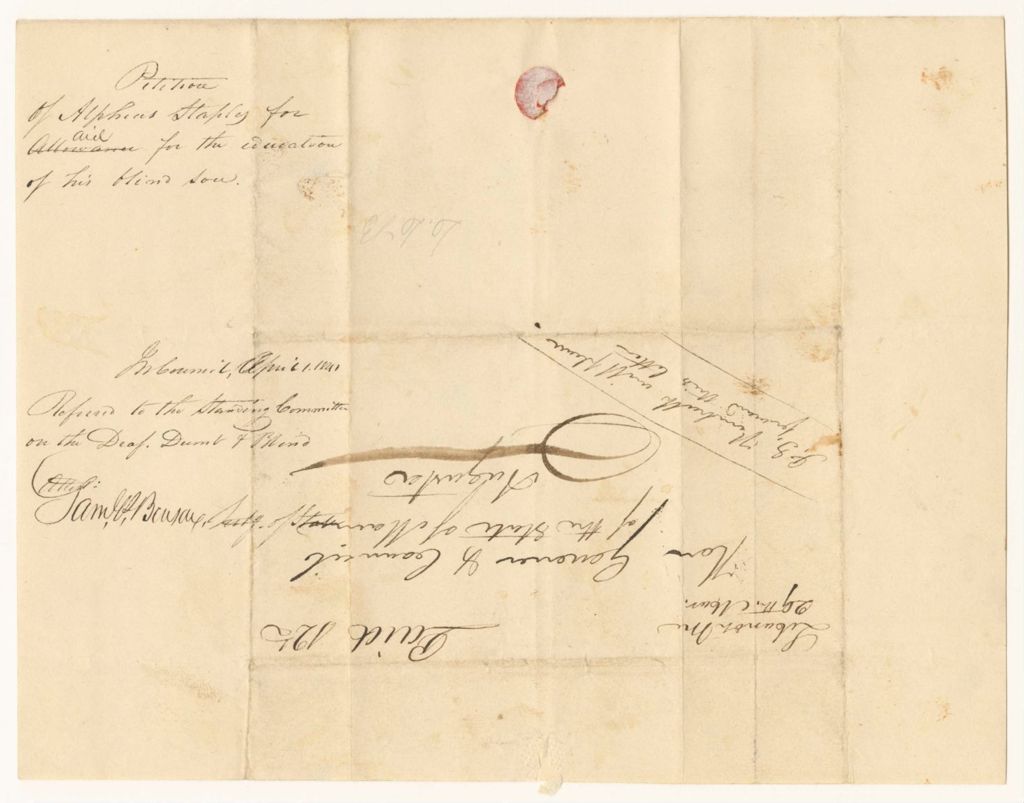 Petition
of Alpheus Staples for
Allowance aid for the education
of his blind son.
In Council, April 1. 1841
Refered to the Standing Committee
on the Deaf. Dumb & Blind
Attest:
Saml. P. Benson, Secty. of State
Lebanon Me
29th Mar.
Paid 12½
Hon Governor & Council
of the State of Maine
Augusta
will please
this letter